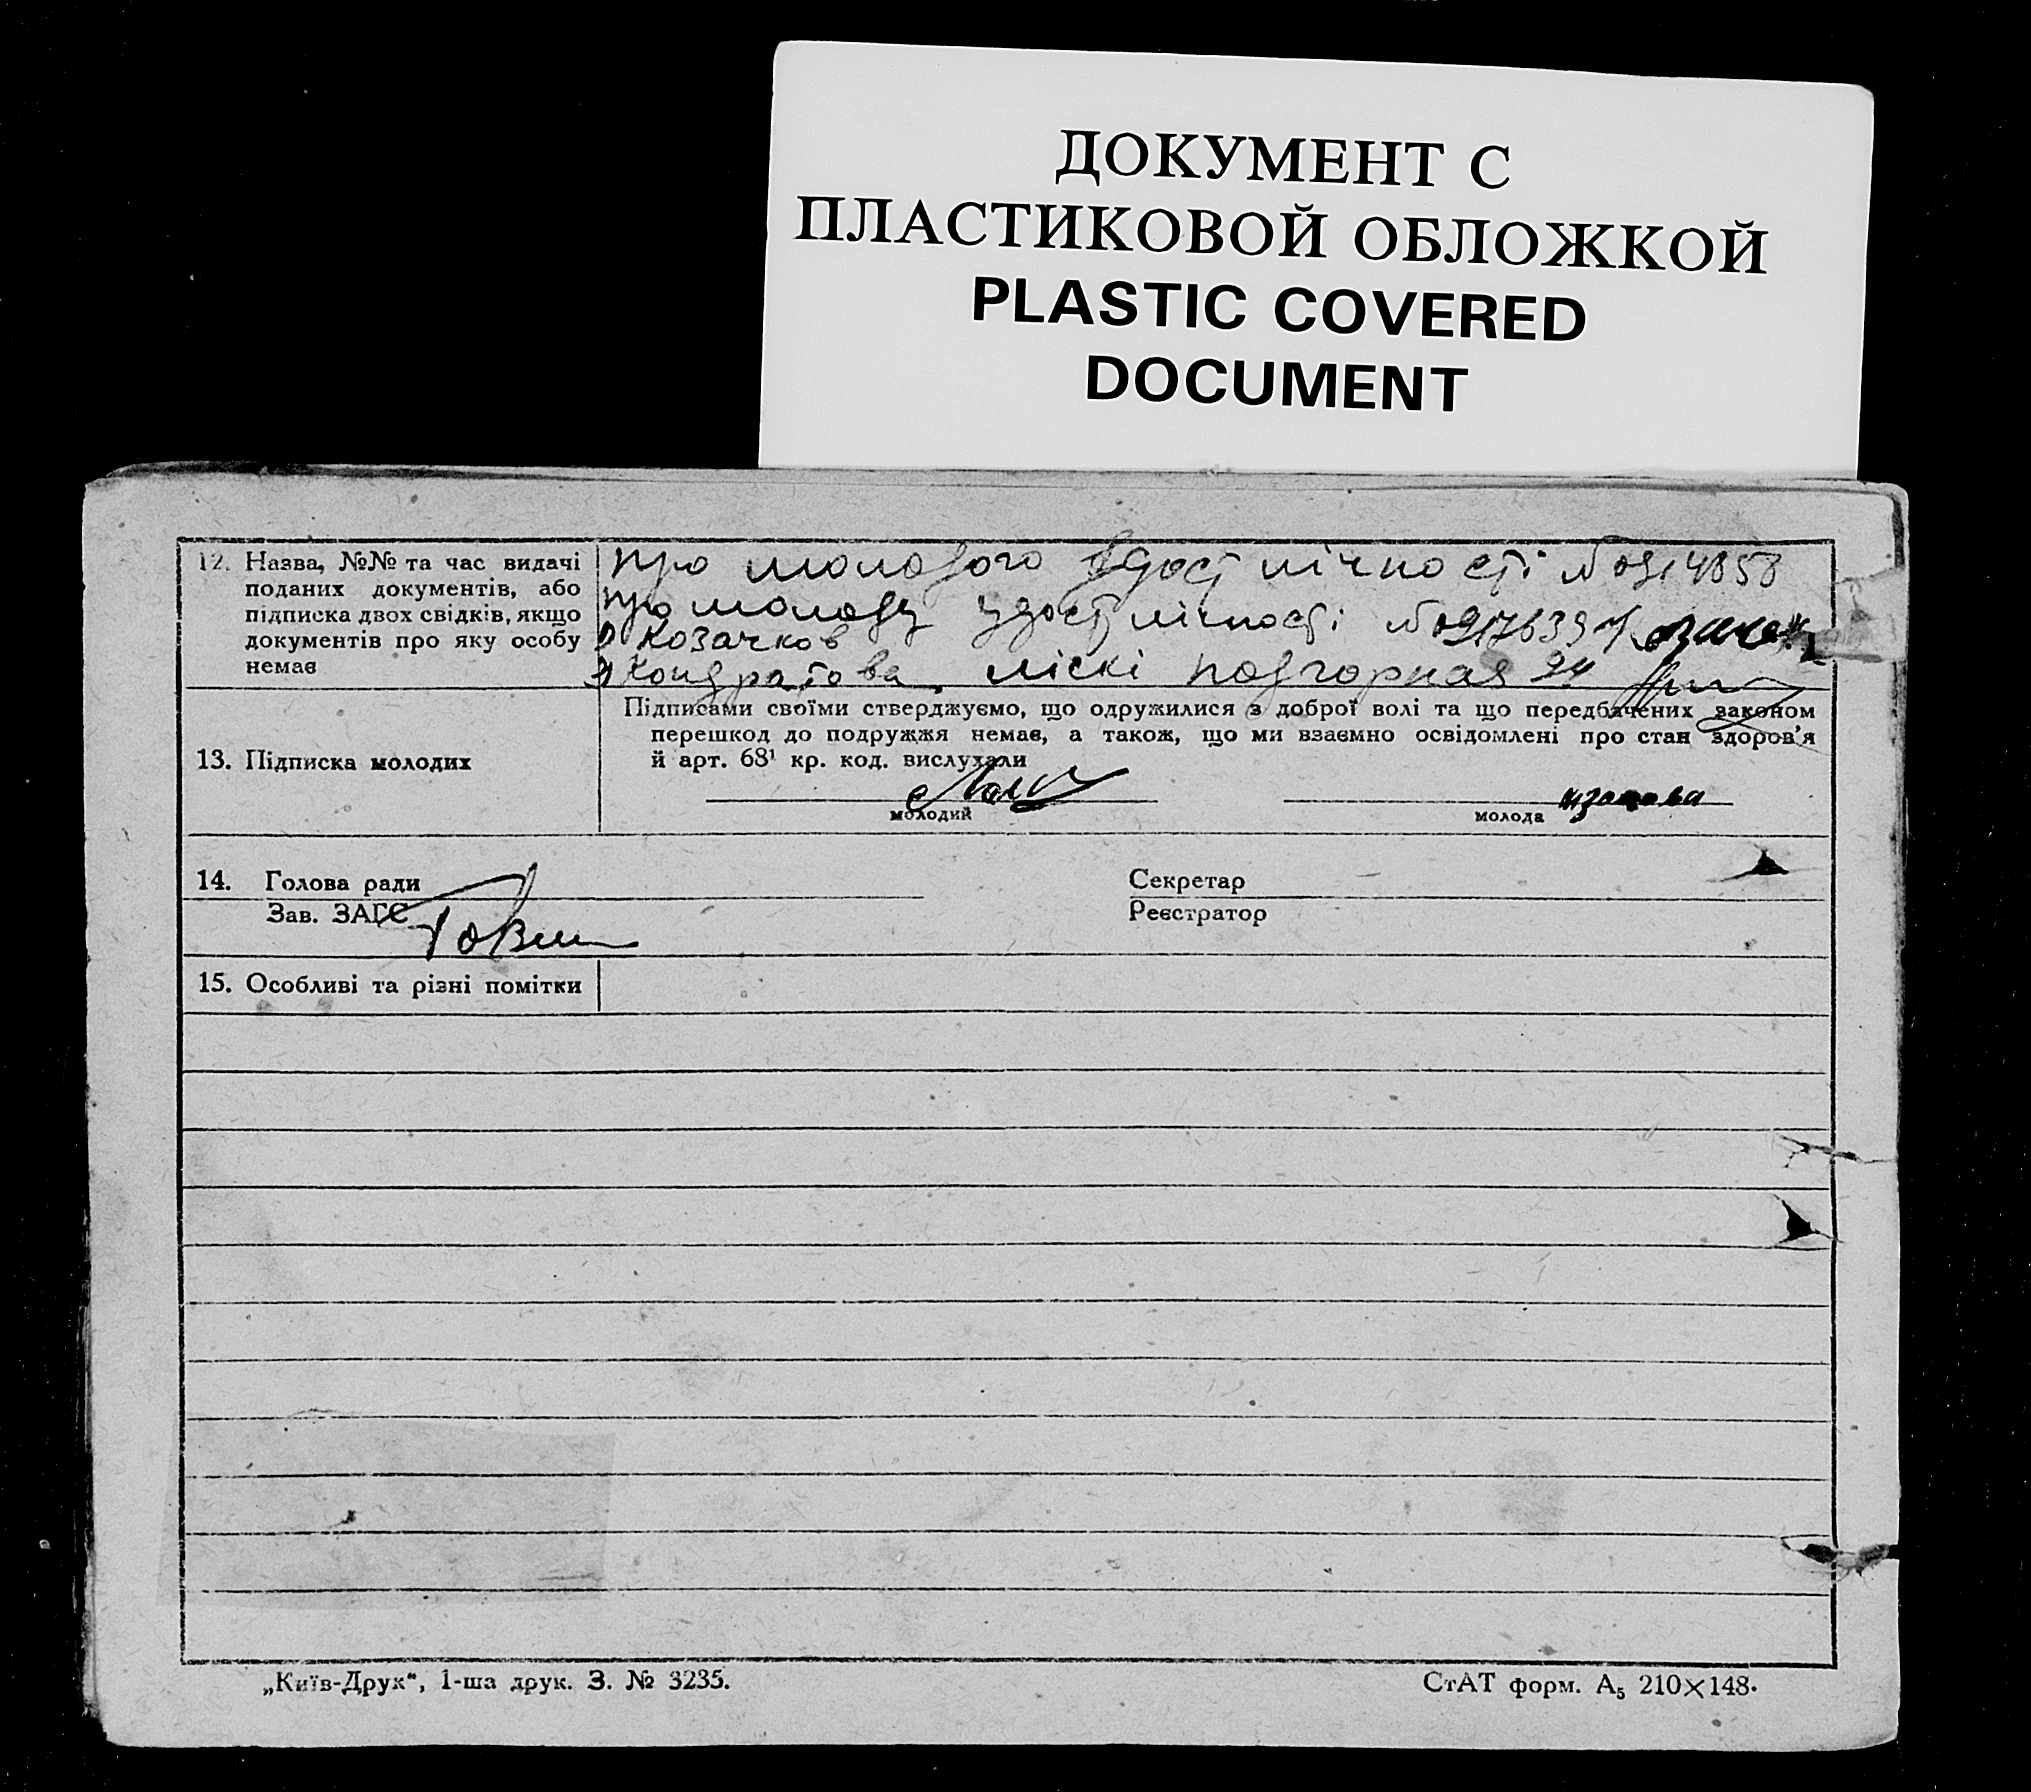 ДОКУМЕНТ С
ПЛАСТИКОВОЙ ОБЛОЖКОЙ
PLASTIC COVERED
DOCUMENT
12. Назва, №№ та час видачі
поданих документів, або
підписка двох свідків, якщо
документів про яку особу
немає
про молодого удост лічності №
про молоду удост лічності №
1) Козачков
2) Кондратова, ліскі подгорная 24
13. Підписка молодих
Підписами своїми стверджуємо, що одружилися з доброї волі та що передбачених законом
перешкод до подружжя немає, а також, що ми взаємно освідомлені про стан здоров'я
й арт. 68¹ кр. код. вислухали
молодий
молода
14. Голова ради
Секретар
Зав. ЗАГС
Реєстратор
15. Особливі та різні помітки
„Київ-Друк“, 1-ша друк. З. № 3235.
СтАТ форм. А₅ 210×148.